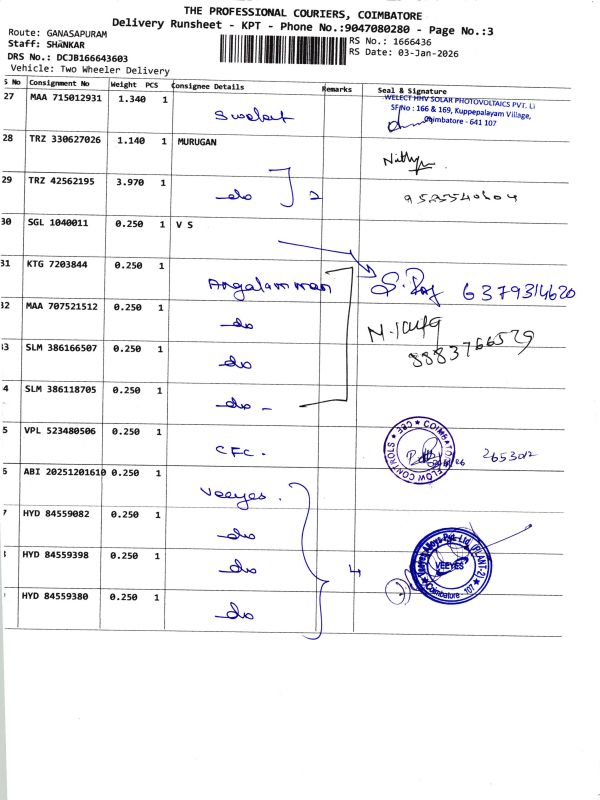 THE PROFESSIONAL COURIERS, COIMBATORE
Delivery Runsheet - KPT - Phone No.:9047080280 - Page No.:3
Route: GANASAPURAM
Staff: SHANKAR
DRS No.: DCJB166643603
Vehicle: Two Wheeler Delivery
RS No.: 1666436
RS Date: 03-Jan-2026
S No Consignment No Weight PCS Consignee Details Remarks Seal & Signature
27 MAA 715012931 1.340 1
WELECT HHV SOLAR PHOTOVOLTAICS PVT. Lt
SF No : 166 & 169, Kuppepalayam Village,
Coimbatore - 641 107
28 TRZ 330627026 1.140 1 MURUGAN
29 TRZ 42562195 3.970 1 do 2
30 SGL 1040011 0.250 1 V S
31 KTG 7203844 0.250 1 Angalamman 6379314620
32 MAA 707521512 0.250 1 do
8883766529
33 SLM 386166507 0.250 1 do
4 SLM 386118705 0.250 1 do -
5 VPL 523480506 0.250 1 CFC.
FLOW CONTROLS ★ CBE ★ COIMBATORE
6 ABI 20251201610 0.250 1 Veeyes.
7 HYD 84559082 0.250 1 do
HYD 84559398 0.250 1 do 4
Pvt. Ltd. (PLANT-2)
VEEYES
Coimbatore - 107
HYD 84559380 0.250 1 do